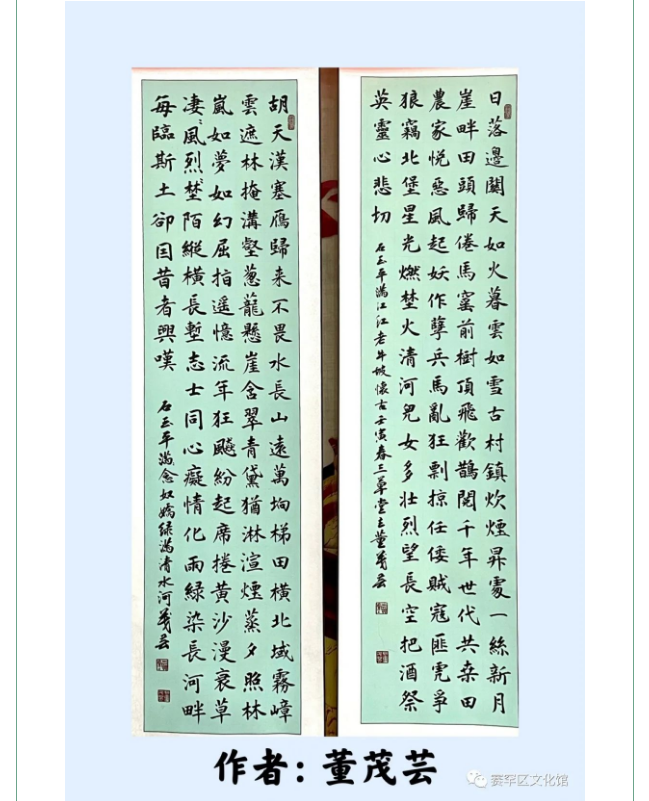 日落邊關天如火暮雲如雪古村鎮炊煙昇處一絲新月
崖畔田頭歸倦馬窰前樹頂飛歡鵲閱千年世代共桑田
農家悦惡風起妖作孽兵馬亂狂剽掠任倭賊寇匪兇爭
狼竊北堡星光燃埜火清河兒女多壯烈望長空把酒祭
英靈心悲切
石玉平滿江紅老牛坡懷古壬寅春三草堂主董茂芸
胡天漢塞雁歸来不畏水長山遠萬垧梯田橫北域霧嶂
雲遮林掩溝壑葱蘢懸崖含翠青黛猶淋渲煙蒸夕照林
嵐如夢如幻屈指遥憶流年狂飈紛起席捲黃沙漫衰草
凄〻風烈埜陌縱橫長塹志士同心癡情化雨綠染長河畔
每臨斯土卻因昔者興嘆
石玉平滿念奴嬌綠滿清水河茂芸
作者：董茂芸
赛罕区文化馆